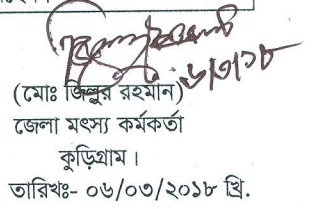 ৬/৩/১৮
(মোঃ জিল্লুর রহমান)
জেলা মৎস্য কর্মকর্তা
কুড়িগ্রাম।
তারিখঃ- ০৬/০৩/২০১৮ খ্রি.